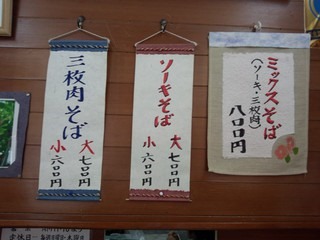 三枚肉そば
大 七〇〇円
小 六〇〇円
ソーキそば
大 七〇〇円
小 六〇〇円
ミックスそば
(ソーキ・三枚肉)
八〇〇円